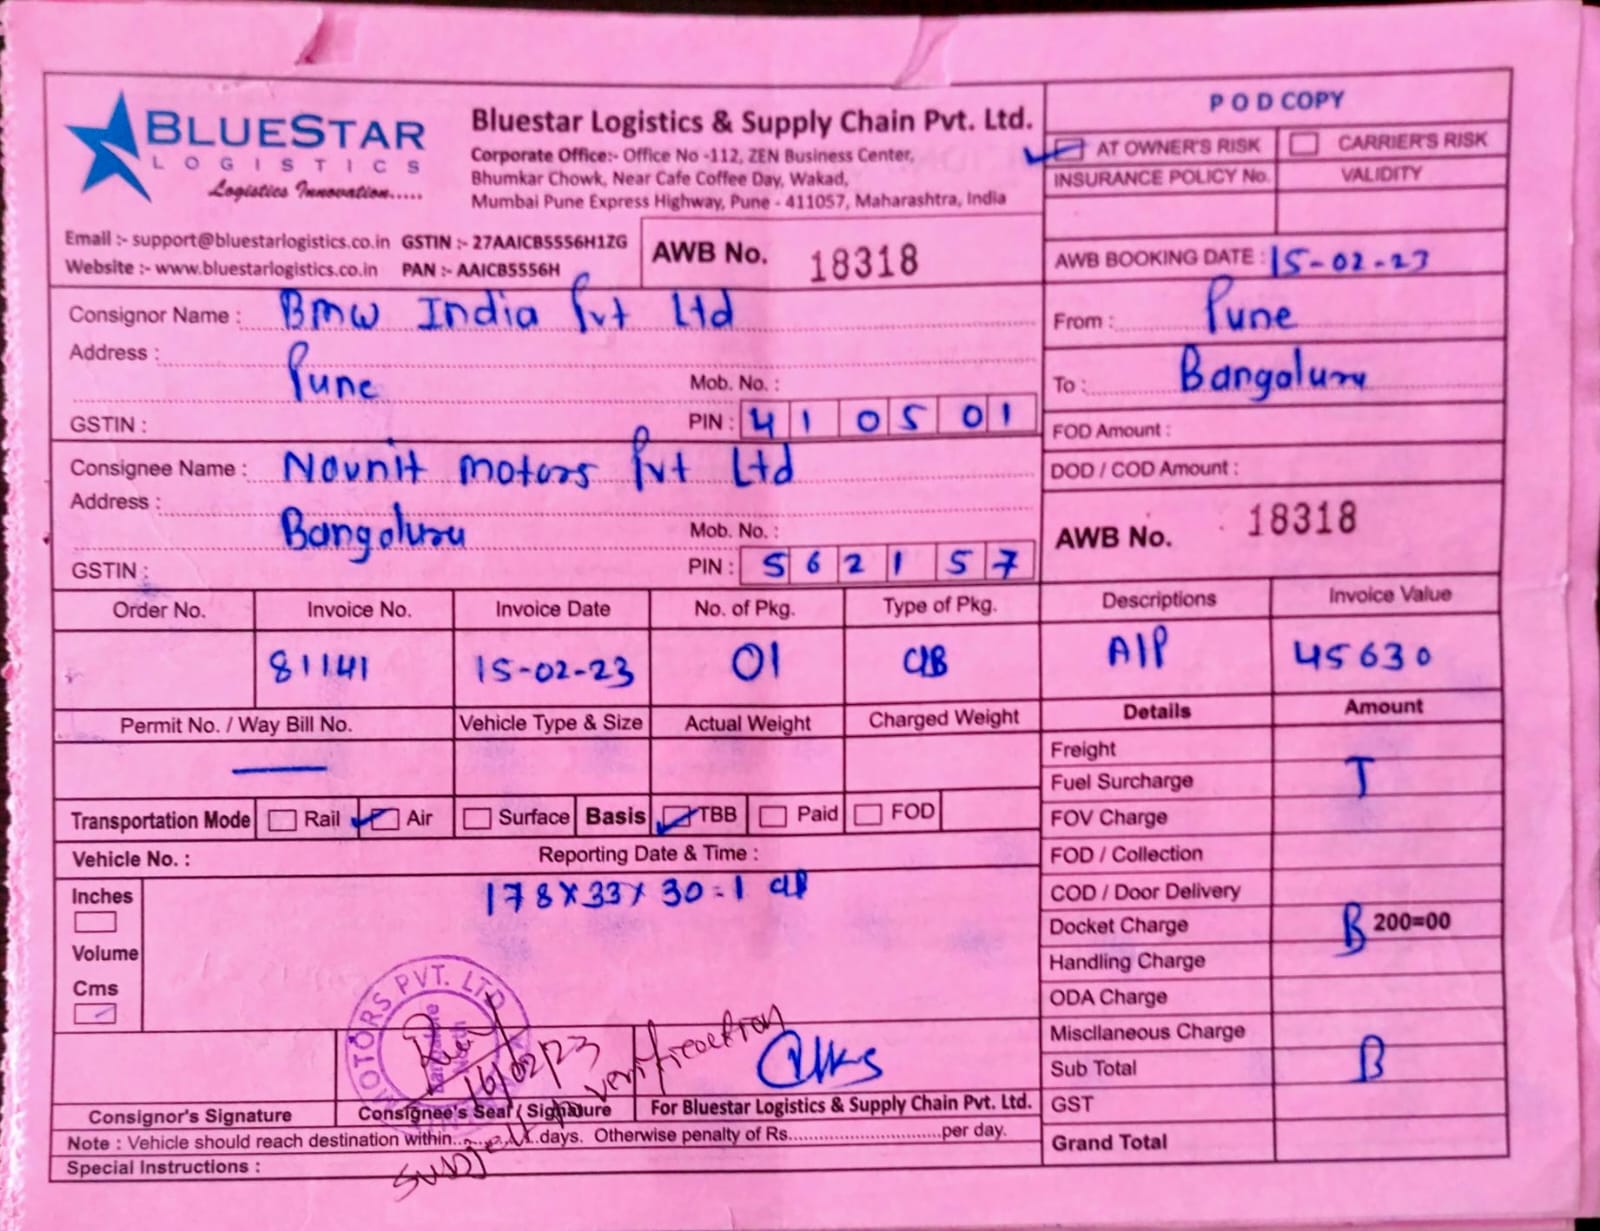 BLUESTAR
LOGISTICS
Logistics Innovation.....
Bluestar Logistics & Supply Chain Pvt. Ltd.
Corporate Office:- Office No -112, ZEN Business Center,
Bhumkar Chowk, Near Cafe Coffee Day, Wakad,
Mumbai Pune Express Highway, Pune - 411057, Maharashtra, India
Email :- support@bluestarlogistics.co.in GSTIN :- 27AAICB5556H1ZG
Website :- www.bluestarlogistics.co.in PAN :- AAICB5556H
AWB No. 18318
POD COPY
AT OWNER'S RISK CARRIER'S RISK
INSURANCE POLICY No. VALIDITY
AWB BOOKING DATE : 15-02-23
From : Pune
To : Bangaluru
FOD Amount :
DOD / COD Amount :
AWB No. 18318
Consignor Name : BMW India Pvt Ltd
Address :
Pune Mob. No. :
GSTIN : PIN : 410501
Consignee Name : Novnit Motors Pvt Ltd
Address :
Bangaluru Mob. No. :
GSTIN : PIN : 562157
Order No. Invoice No. Invoice Date No. of Pkg. Type of Pkg. Descriptions Invoice Value
81141 15-02-23 01 CIB AIP 45630
Permit No. / Way Bill No. Vehicle Type & Size Actual Weight Charged Weight Details Amount
Freight
Fuel Surcharge T
FOV Charge
FOD / Collection
COD / Door Delivery
Docket Charge B 200=00
Handling Charge
ODA Charge
Miscllaneous Charge
Sub Total B
GST
Grand Total
Transportation Mode Rail Air Surface Basis TBB Paid FOD
Vehicle No. : Reporting Date & Time :
178X33X30=1
Inches
Volume
Cms
MOTORS PVT. LTD
16/02/23
verification
Consignor's Signature Consignee's Seal / Signature For Bluestar Logistics & Supply Chain Pvt. Ltd.
Note : Vehicle should reach destination within............days. Otherwise penalty of Rs..............................per day.
Special Instructions :